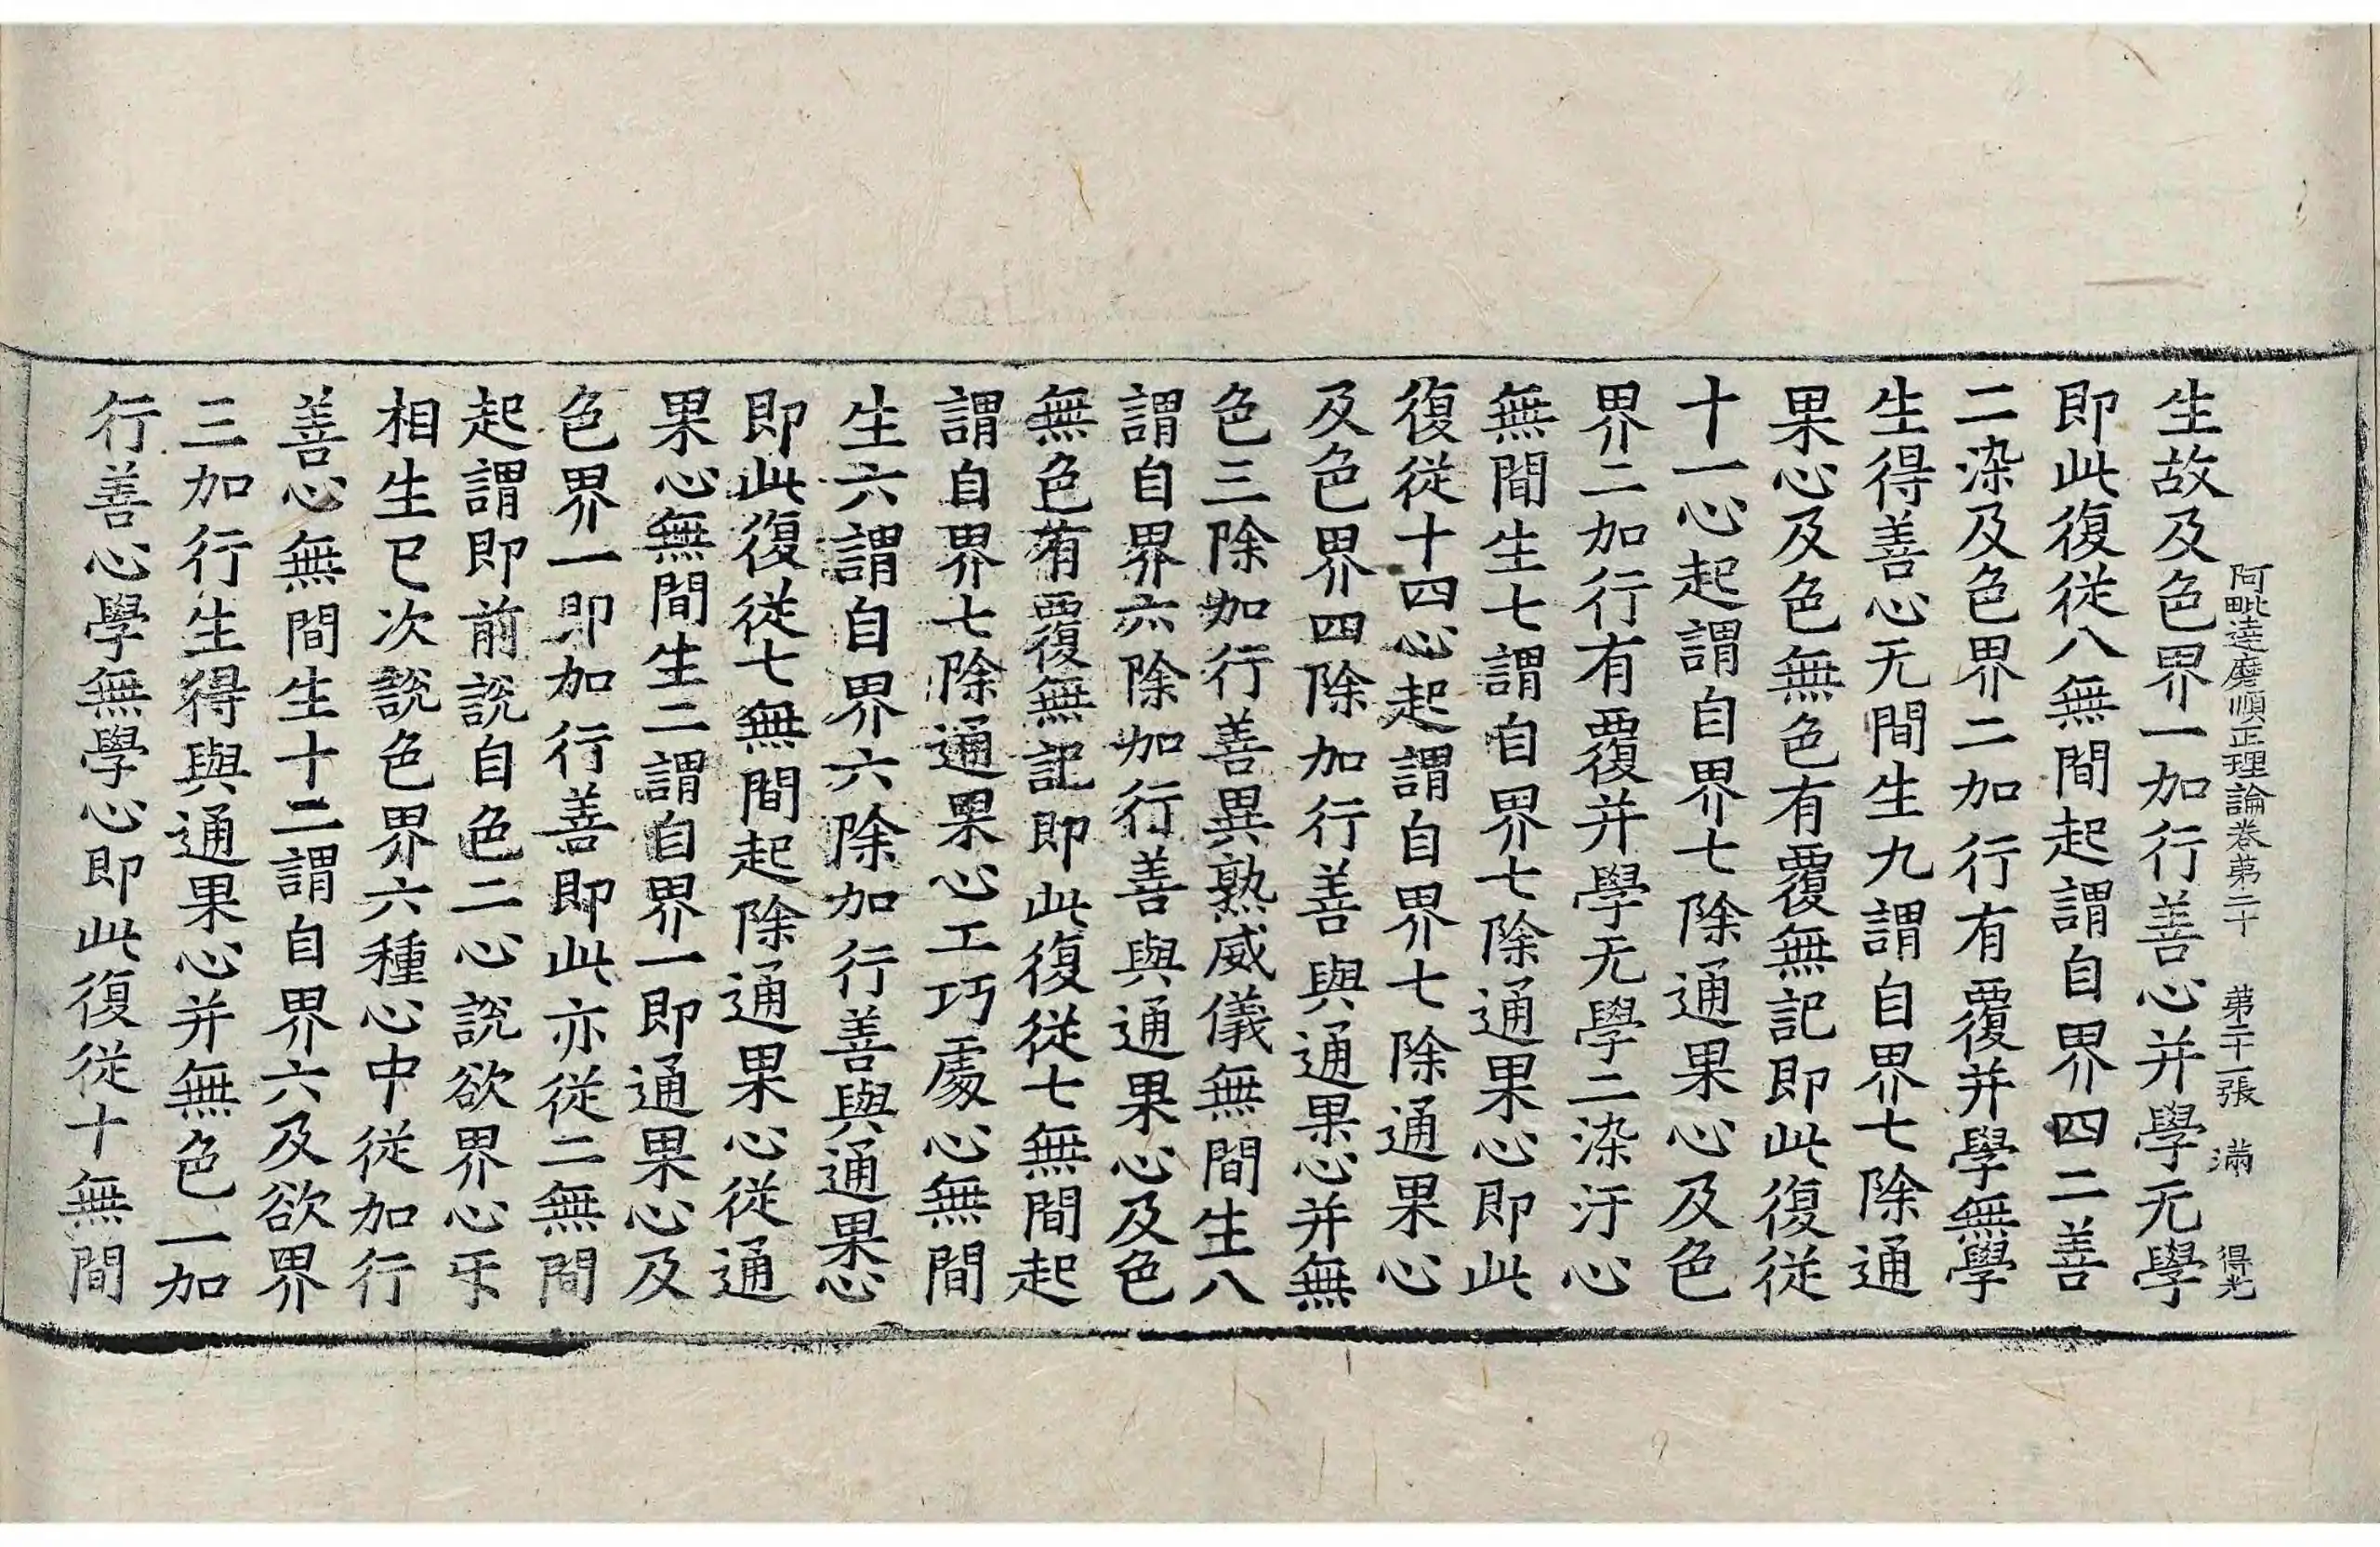 阿毗達磨順正理論卷第二十 第二十一張 滿 得光
生故及色界一加行善心并學无學
即此復從八無間起謂自界四二善
二染及色界二加行有覆并學無學
生得善心无間生九謂自界七除通
果心及色無色有覆無記即此復從
十一心起謂自界七除通果心及色
界二加行有覆并學无學二染汙心
無間生七謂自界七除通果心即此
復從十四心起謂自界七除通果心
及色界四除加行善與通果心并無
色三除加行善異熟威儀無間生八
謂自界六除加行善與通果心及色
無色有覆無記即此復從七無間起
謂自界七除通果心工巧處心無間
生六謂自界六除加行善與通果心
即此復從七無間起除通果心從通
果心無間生二謂自界一即通果心及
色界一即加行善即此亦從二無間
起謂即前說自色二心說欲界心乐
相生已次說色界六種心中從加行
善心無間生十二謂自界六及欲界
三加行生得與通果心并無色一加
行善心學無學心即此復從十無間